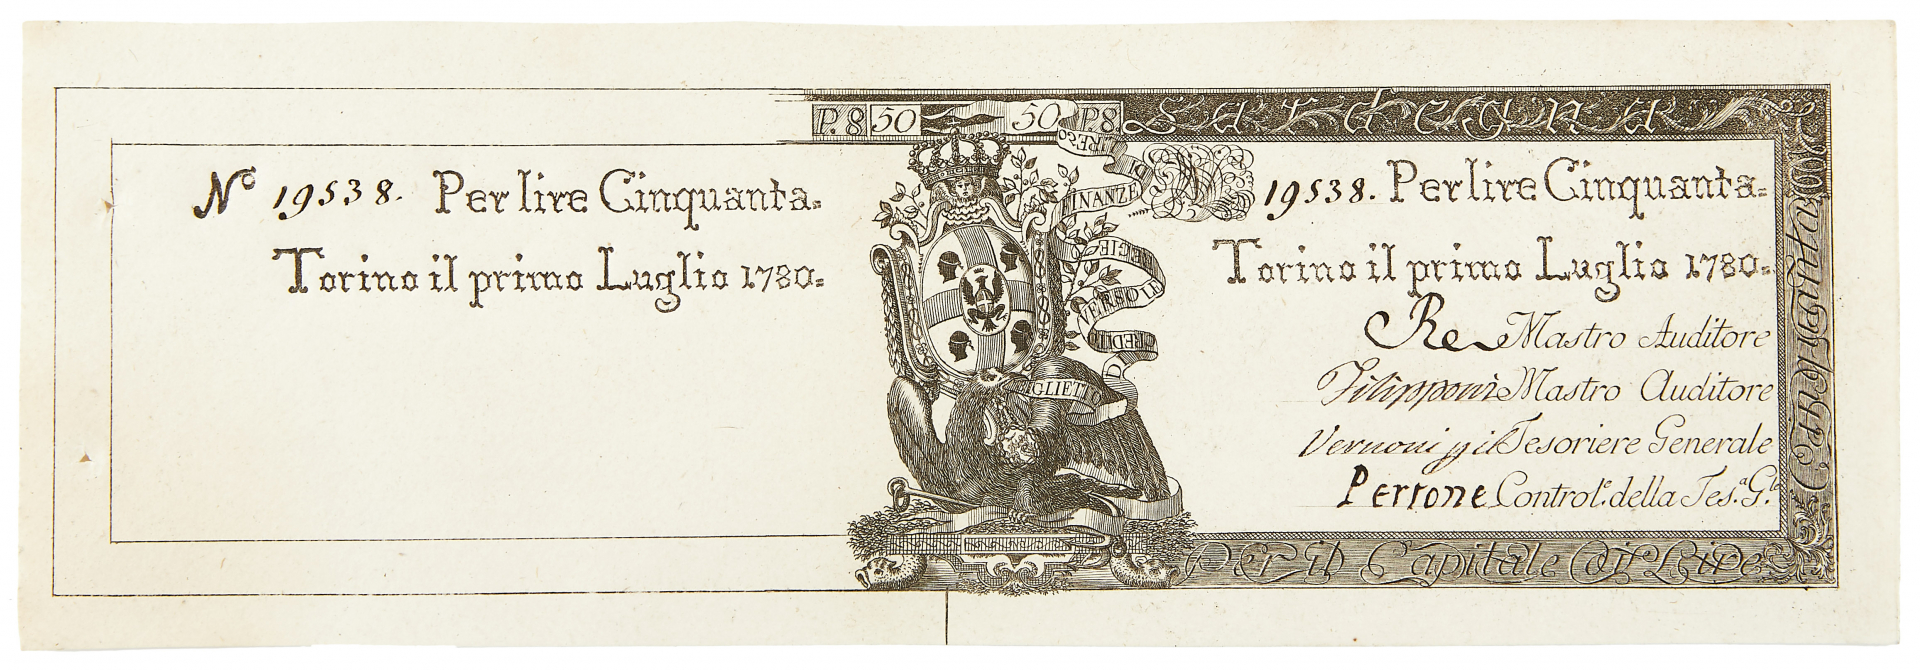 P. 8 50 50 P. 8
Sardegna
Nº 19538. Per lire Cinquanta.
Torino il primo Luglio 1780.
BIGLIETTO DI CREDITO VERSO LE REGIE FINANZE
19538. Per lire Cinquanta.
Torino il primo Luglio 1780.
Re Mastro Auditore
Filipponi Mastro Auditore
Vernoni Tesoriere Generale
Perrone Controle. della Tes.a G.le
Per il Capitale di Lire
Cinquanta